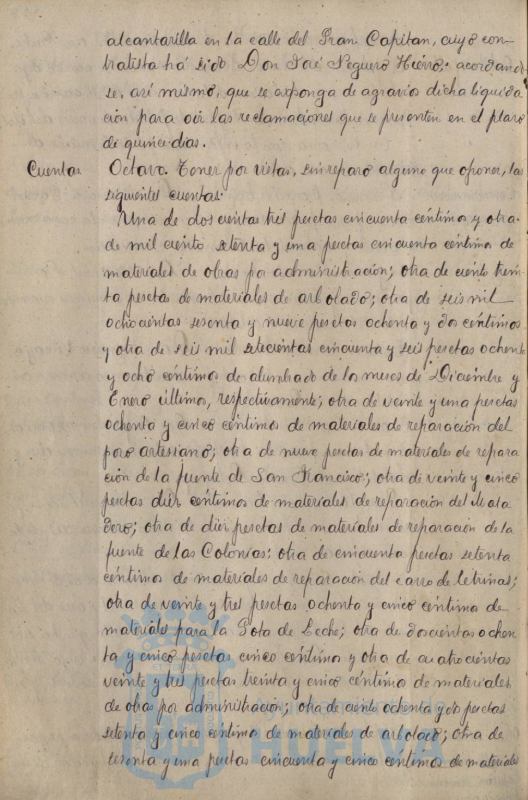 alcantarilla en la calle del Gran Capitan, cuyo con-
tratista há sido Don José Peguero Hierro: acordando-
se, así mismo, que se exponga de agravios dicha liquida-
ción para oir las reclamaciones que se presenten en el plazo
de quince dias.
Cuentas. Octava. Tener por vistas, sin reparo alguno que oponer, las
siguientes cuentas:
Una de doscientas tres pesetas cincuenta céntimos y otra
de mil ciento setenta y una pesetas cincuenta céntimos de
materiales de obras por administración; otra de ciento trein-
ta pesetas de materiales de arbolado; otra de seis mil
ochocientas sesenta y nueve pesetas ochenta y dos céntimos
y otra de seis mil setecientas cincuenta y seis pesetas ochenta
y ocho céntimos de alumbrado de los meses de Diciembre y
Enero último, respectivamente; otra de veinte y una pesetas
ochenta y cinco céntimos de materiales de reparación del
pozo artesiano; otra de nueve pesetas de materiales de repara
ción de la fuente de San Francisco; otra de veinte y cinco
pesetas diez céntimos de materiales de reparación del Mata
dero; otra de diez pesetas de materiales de reparación de la
fuente de las Colonias; otra de cincuenta pesetas setenta
céntimos de materiales de reparación del carro de letrinas;
otra de veinte y tres pesetas ochenta y cinco céntimos de
materiales para la Gota de Leche; otra de doscientas ochen
ta y cinco pesetas cinco céntimos y otra de cuatrocientas
veinte y tres pesetas treinta y cinco céntimos de materiales
de obras por administración; otra de ciento ochenta y dos pesetas
setenta y cinco céntimos de materiales de arbolado; otra de
sesenta y una pesetas cincuenta y cinco céntimos de materiales
HUELVA